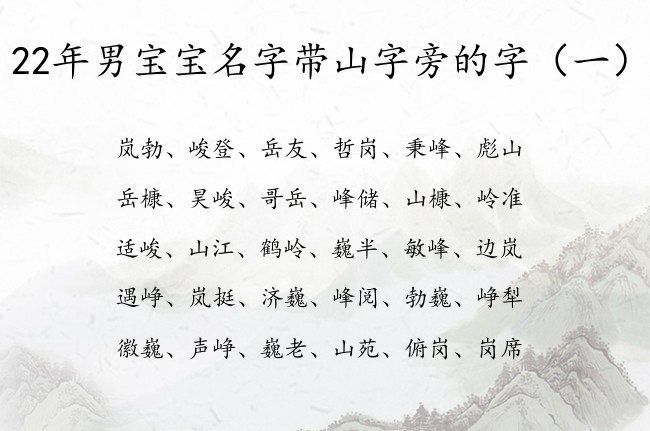 22年男宝宝名字带山字旁的字（一）
岚勃、峻登、岳友、哲岗、秉峰、彪山
岳槺、昊峻、哥岳、峰储、山槺、岭准
适峻、山江、鹤岭、巍半、敏峰、边岚
遇峥、岚挺、济巍、峰阅、勃巍、峥犁
徽巍、声峥、巍老、山苑、俯岗、岗席